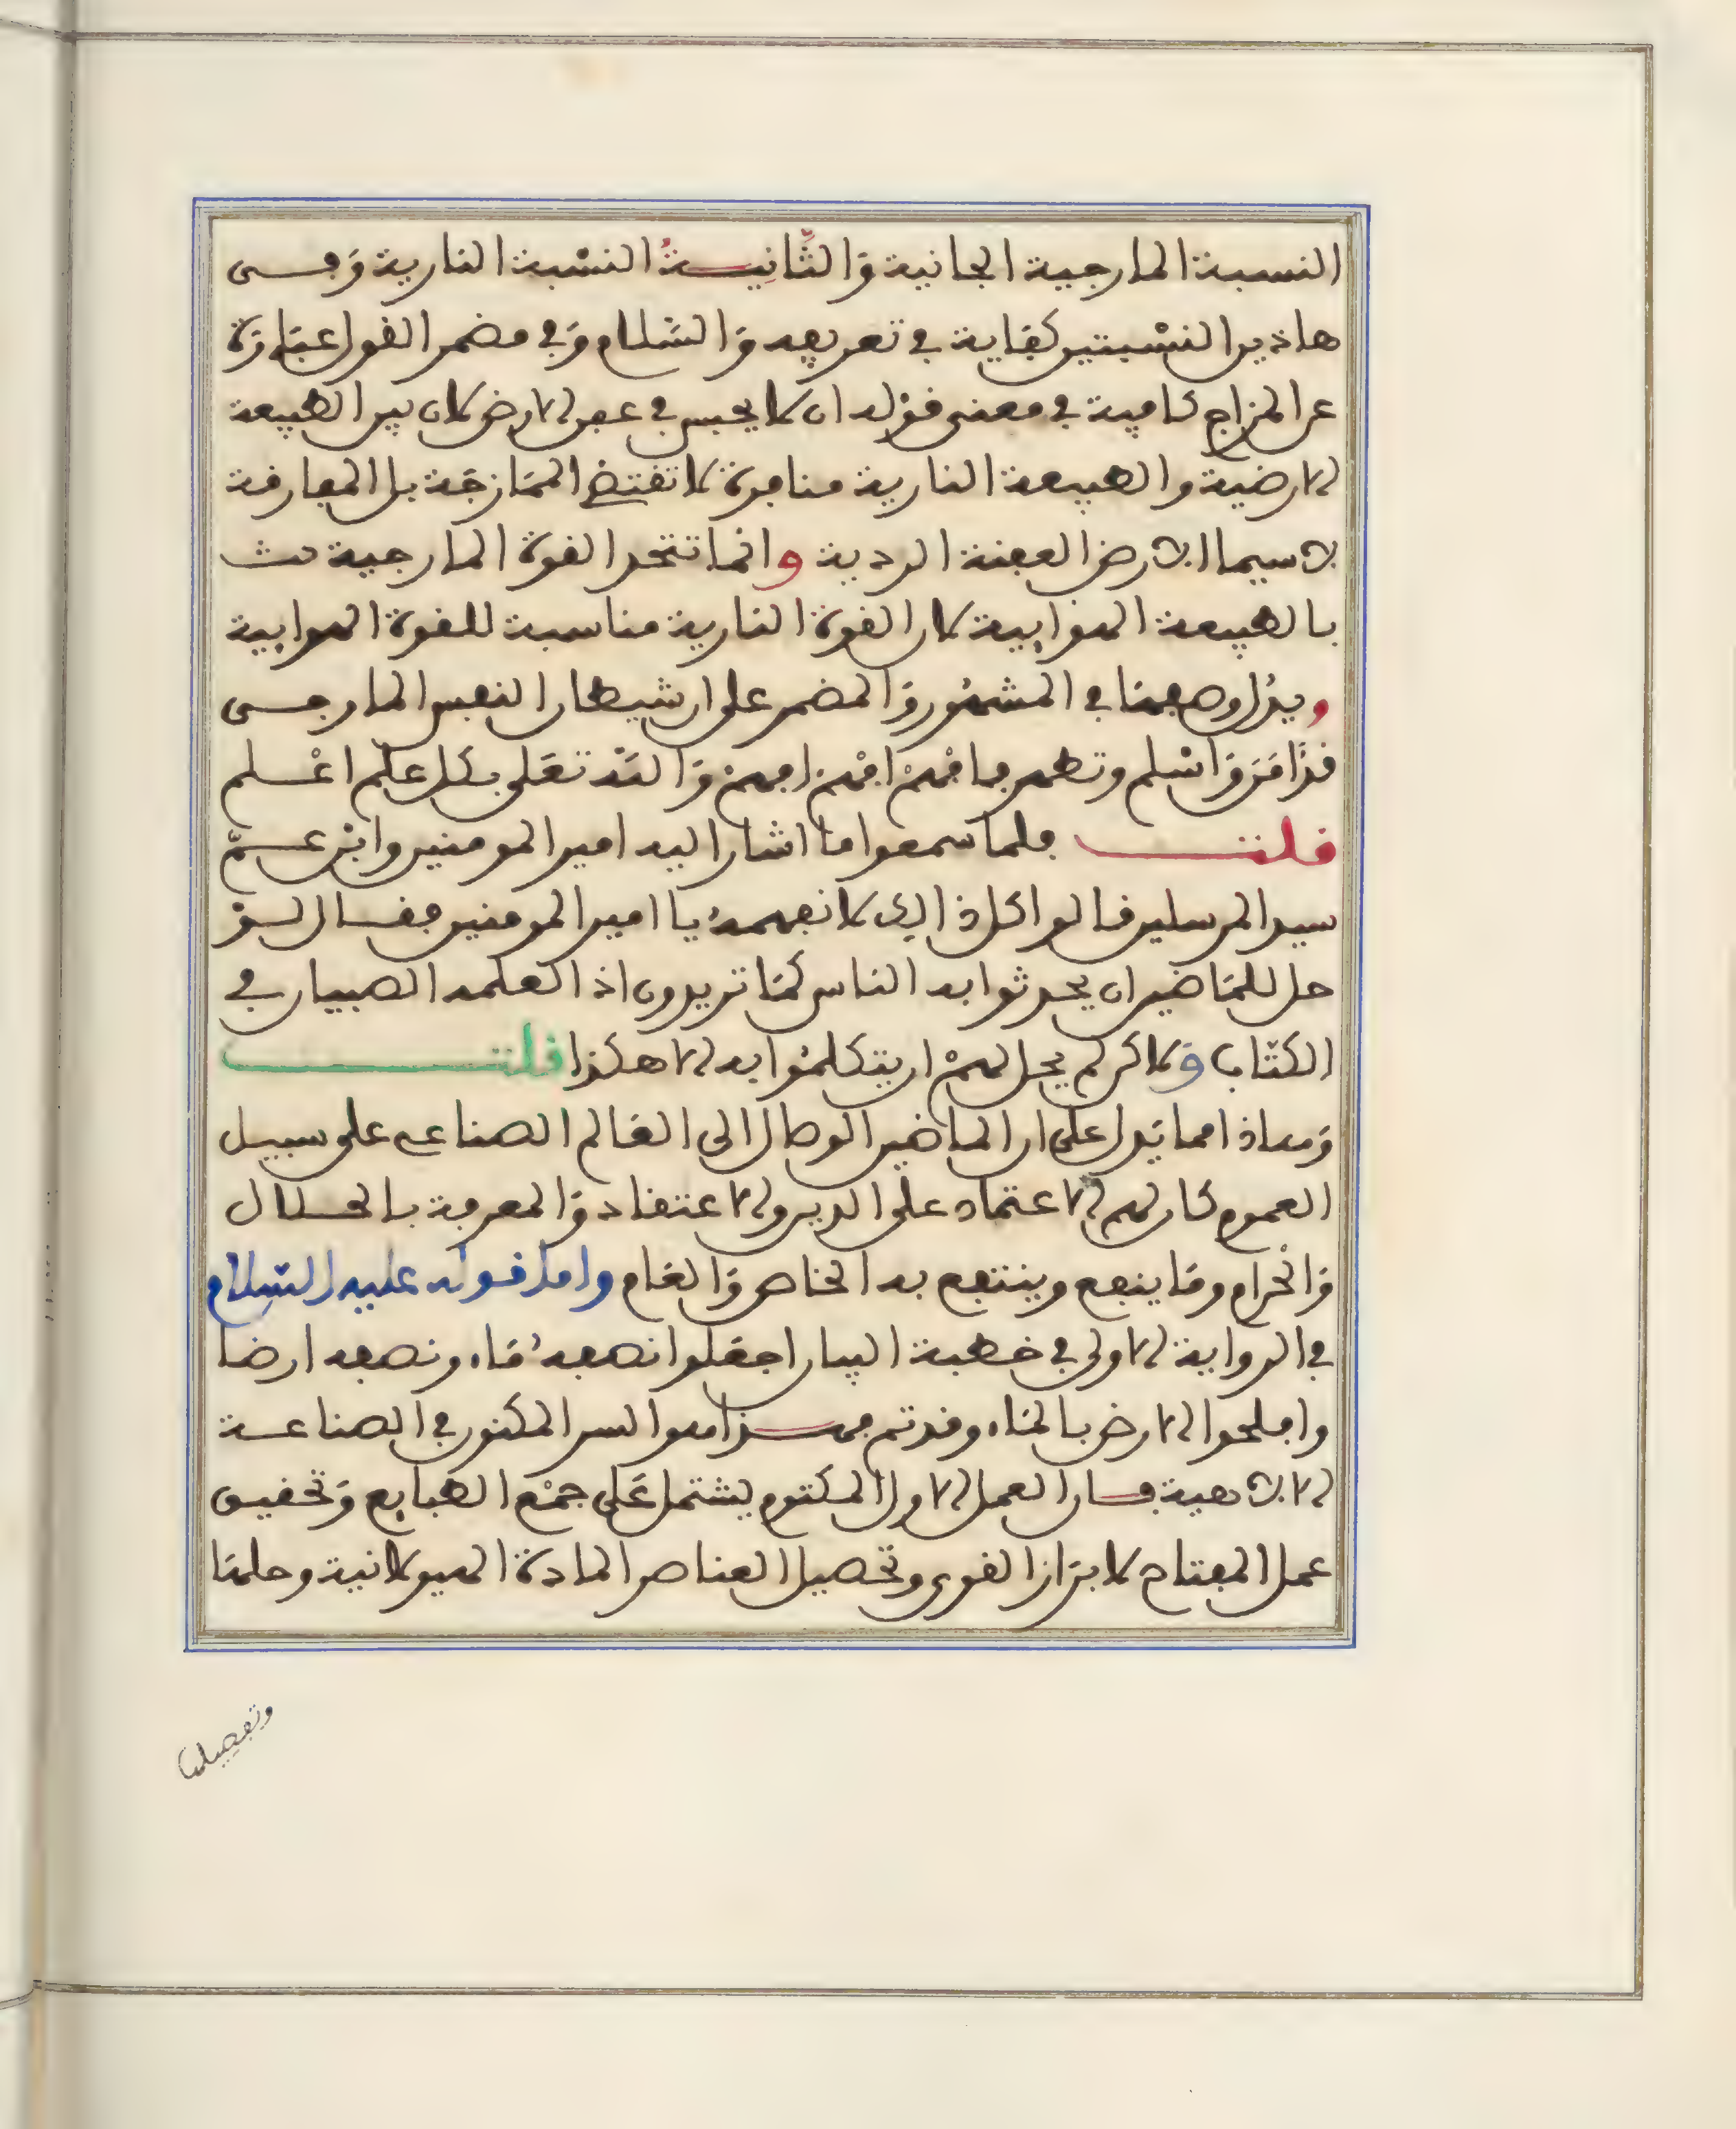 النسبة المارجية الجانية وَالثَّانِيَةُ النسْبة النارية وَفى
هاذين النسْبتين كفاية في تعريفه وَالسَّلام وَفى مضمر القول عبَارَة
عن المزاج كافية في معنى قوْله ان لا يحبس في عفن الارض لان بين الطبيعة
الارضية والطبيعة النارية منافرة لا تقتضى الممَازجَة بل المفارقة
لا سيما الارض العفنة الردية وانما تتحد القوة المارجية
بالطبيعة الهوَايية لان القوة النارية مناسبة للقوة الهوايية
في المشهُور وَالمضمر على ان شيطان النفس المارجى
قدْ امَن وَاسْلم وتطهر فافهمْ افْهم افهمْ وَاللَّه تعَلى بكل علم اعْلم
قلت فلما سمعوا ما اشار اليه امير المومنين وابْن عمّ
سيد المرسلين قالوا كل ذالك لا نفهمهُ يا امير المومنين فقال لوْ
حل للمَاضين ان يحدثوا به الناس كمَا تريدون اذا لعلمه الصبيان في
الكتّاب وَلاكن لم يحل لهمْ ان يتكلمُوا به الا هكذا قلت
وَهاذا مما يَدل على ان الماضين الوصال الى العَالم الصناعى على سبيل
العموم كان لهم الاعتماد على الدين والاعتقاد وَالمعرفة بالحلال
وَالحْرام ومَا ينفع وينتفع به الخاص وَالعَام واما قوله عليه السَّلام
في الرواية الاولى في خطبة البيان اجعَلوا نصفهُ مَاء ونصفه ارضا
وافلحوا الارض بالمَاء وقد تم فهذا هو السر المكنون في الصناعة
الالاهية فان العمل الاول المكتوم يشتمل عَلى جمْع الطبايع وَتحقيق
عمل المفتاح لابرَاز القوى وتحصيل العناصر المادة الهيولانية وحلهَا
وتفصيلها